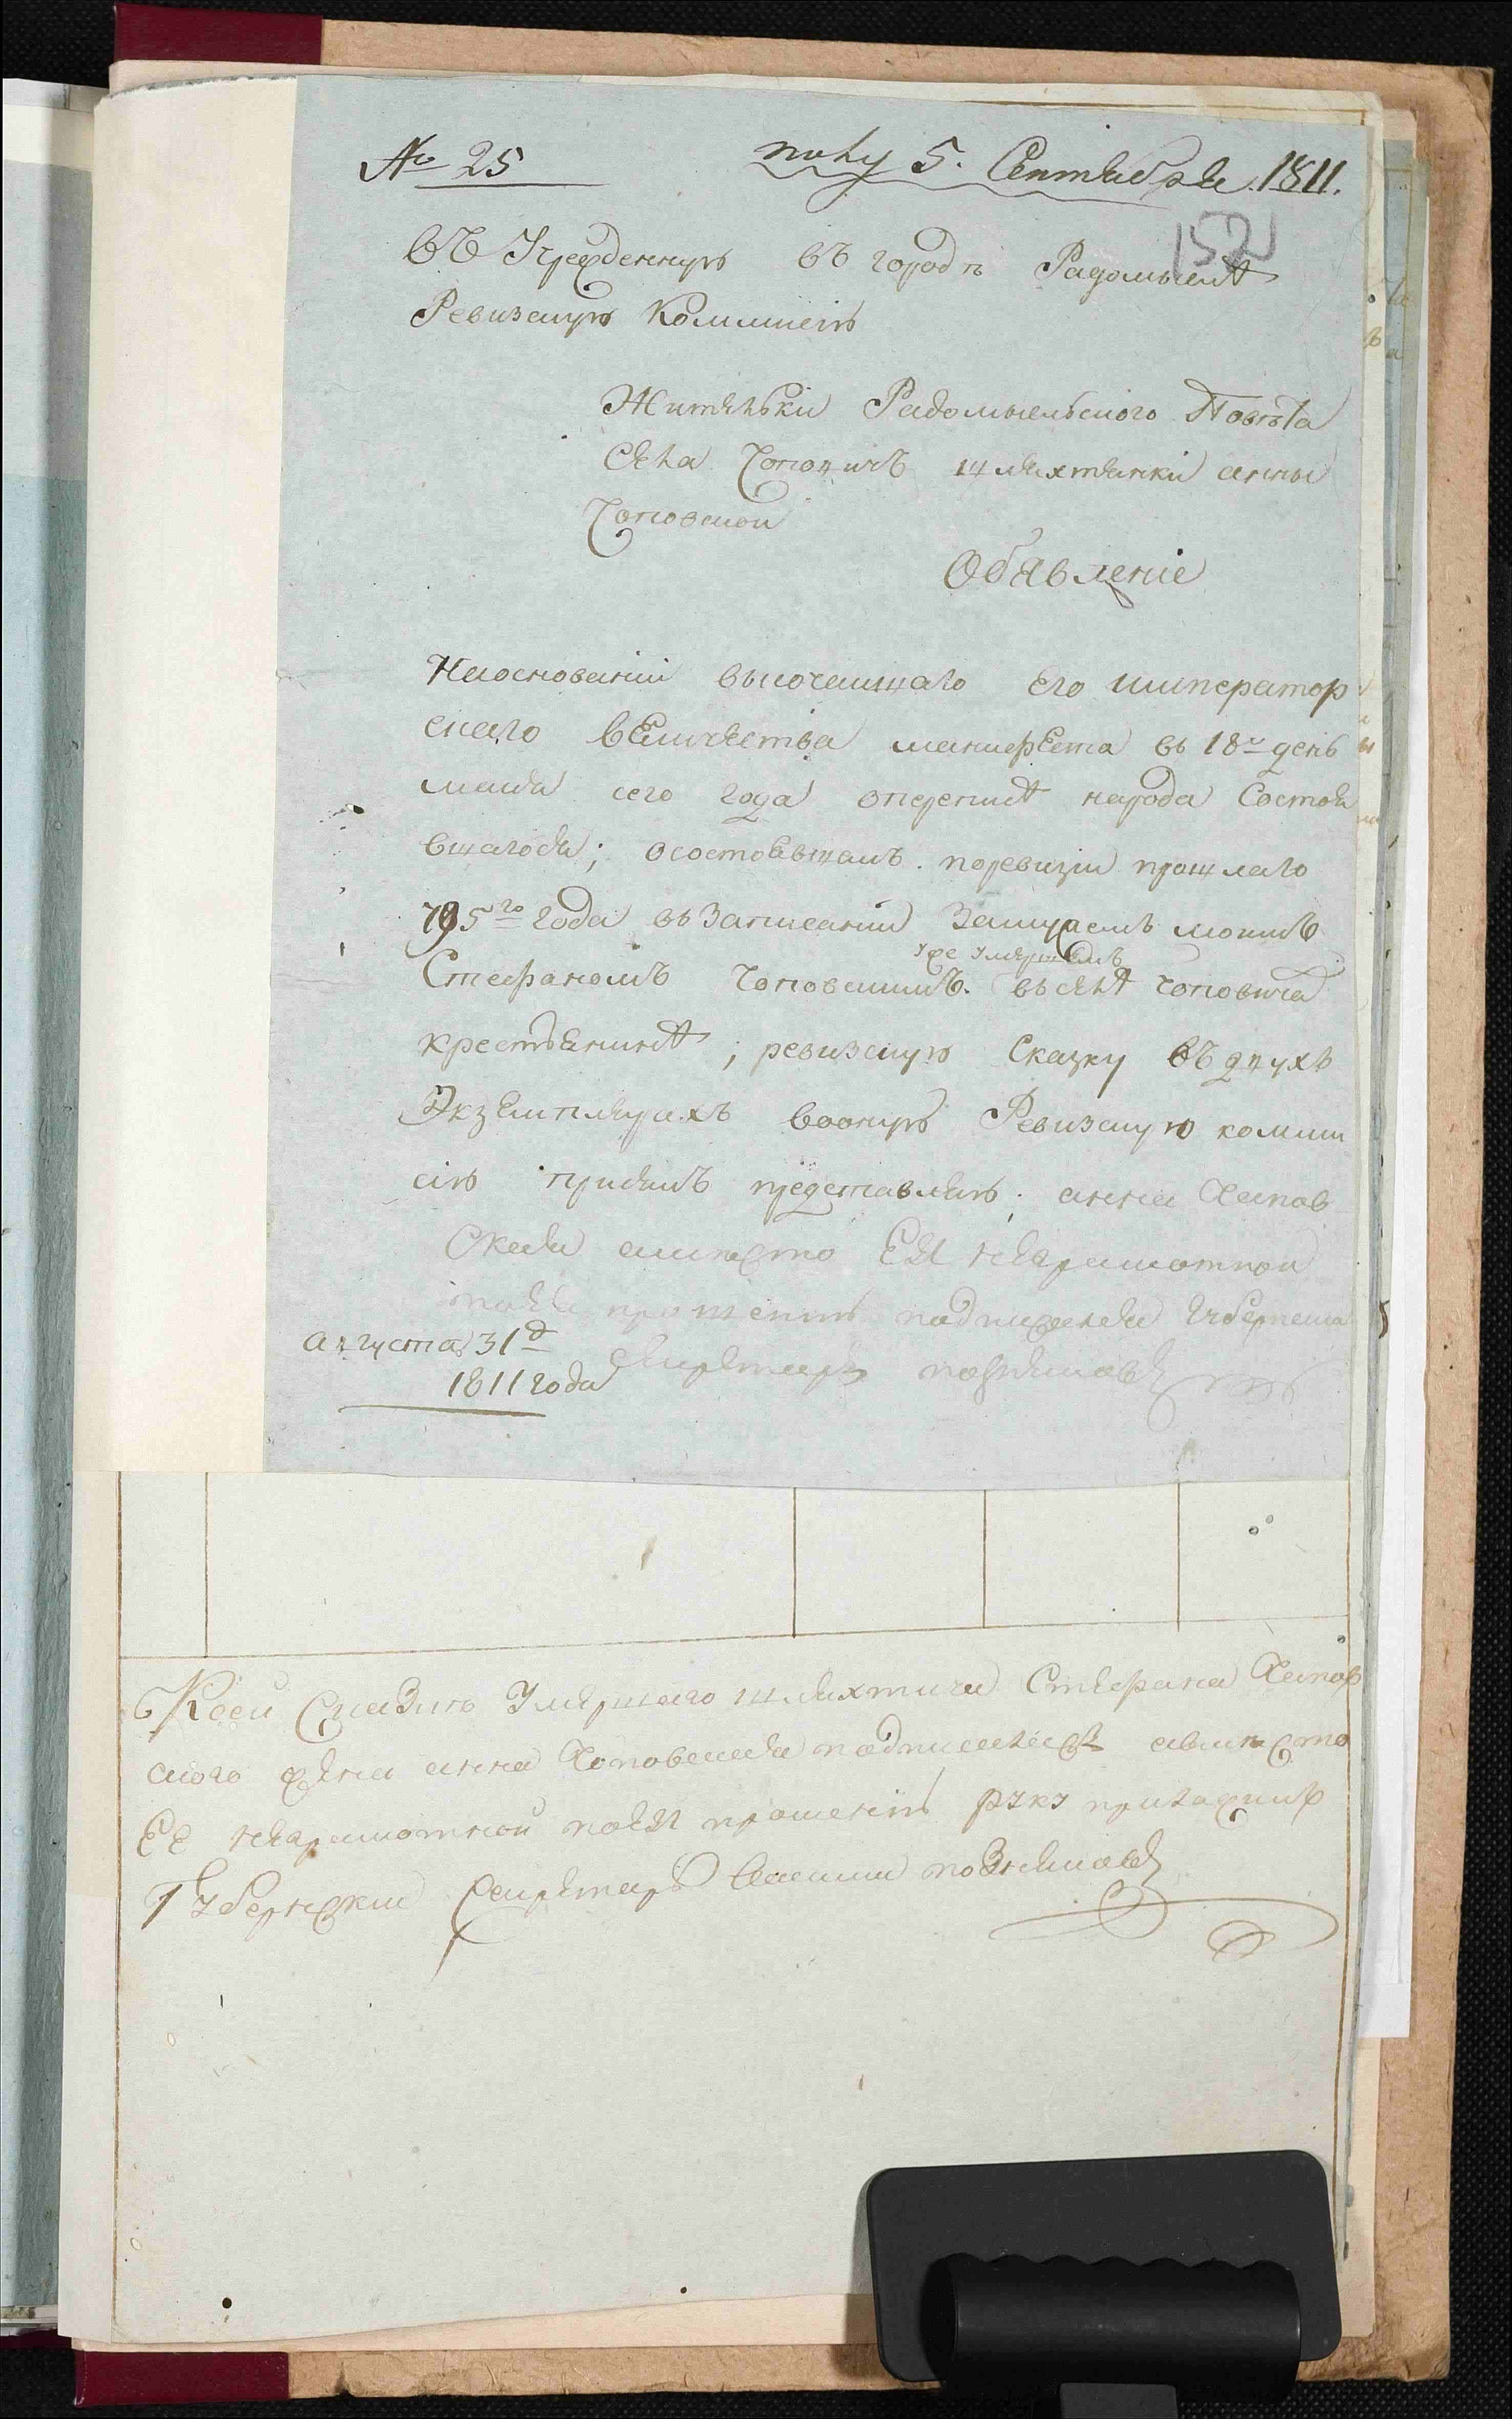 № 25
полу 5. Сентября 1811.
152
въ Учрежденную въ городѣ Радомыслѣ
Ревизкую Коммисію
Жителки Радомысльского Повѣта
села Чоповичъ шляхтянки анны
Чоповской
Обявленіе
На основаніи высочаишаго Его император
скаго вЕличества манифЕста въ 18й день
маия сего года оперепиѣ народа Состоя
вшагося; осостоявшамъ поревизіи прошлаго
795го года въ Записаніи Замужемъ моимъ
уже умершимъ
Стефаномъ Чоповскимъ въ селѣ Чоповича
крестьянинѣ; ревизкую Сказку въ двухъ
Экземплярахъ вооную Ревизкую комми
сію присемъ представляю; анна Чапов
Ская авместо ЕЯ неграмотной
поея прошенію подписался Губернски
секретарь познековъ
августа 31д
1811 года
Ксей Сказкѣ Умершаго шляхтича Стефана Чапов
ского жена анна Чоповская подписалась авместо
Ее неграмотной поея прошенію руку приложилъ
Губернский Секретарь Василии позняковъ